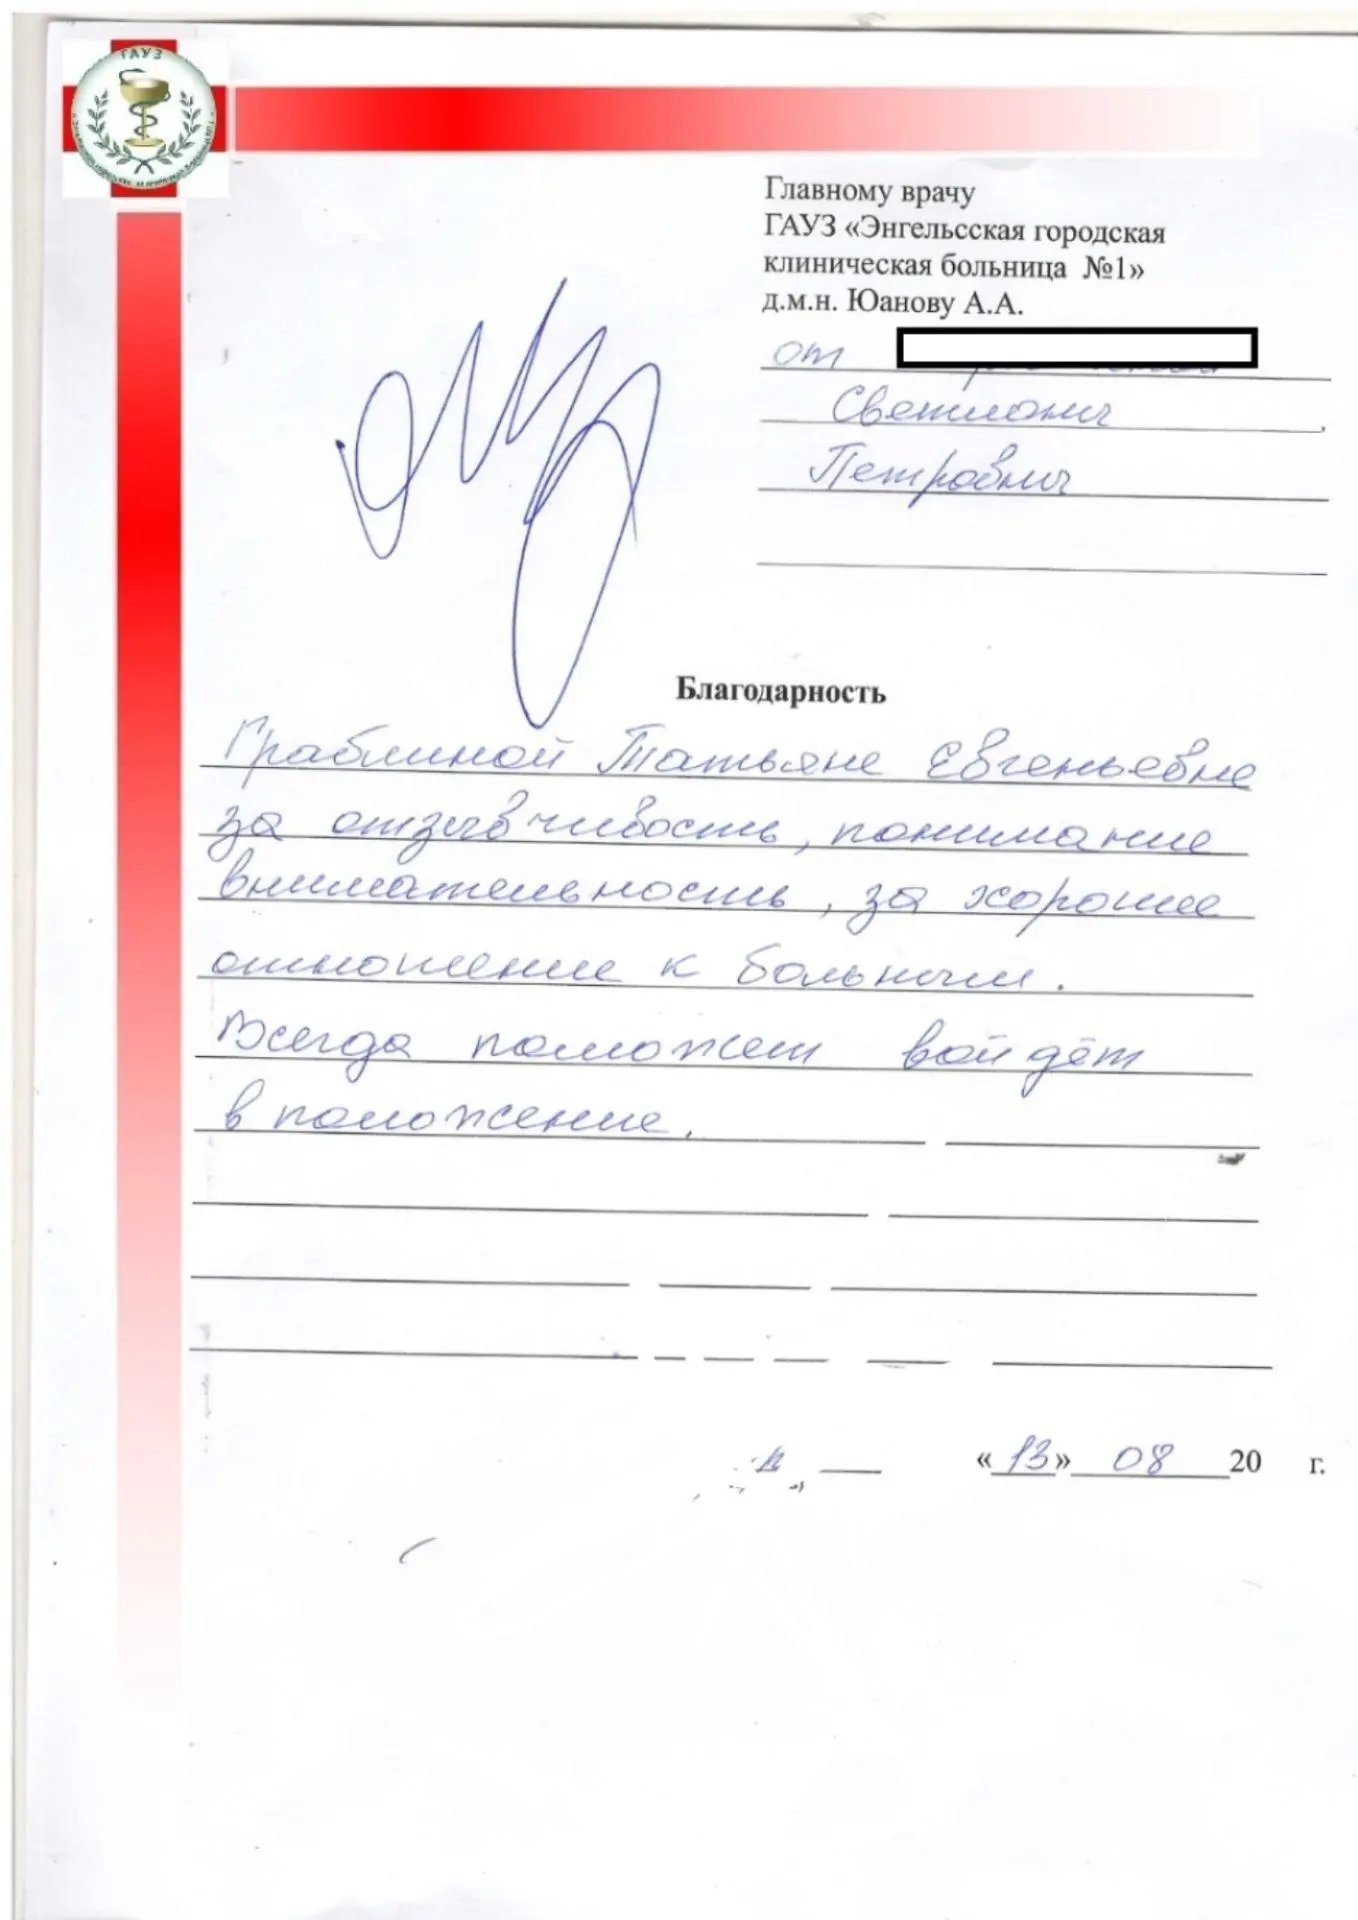 ГАУЗ
Главному врачу
ГАУЗ «Энгельсская городская
клиническая больница №1»
д.м.н. Юанову А.А.
от
Светланы
Петровны
Благодарность
Граблиной Татьяне Евгеньевне
за отзывчивость, понимание
внимательность, за хорошее
отношение к больным.
Всегда поможет войдёт
в положение.
«13» 08 20 г.